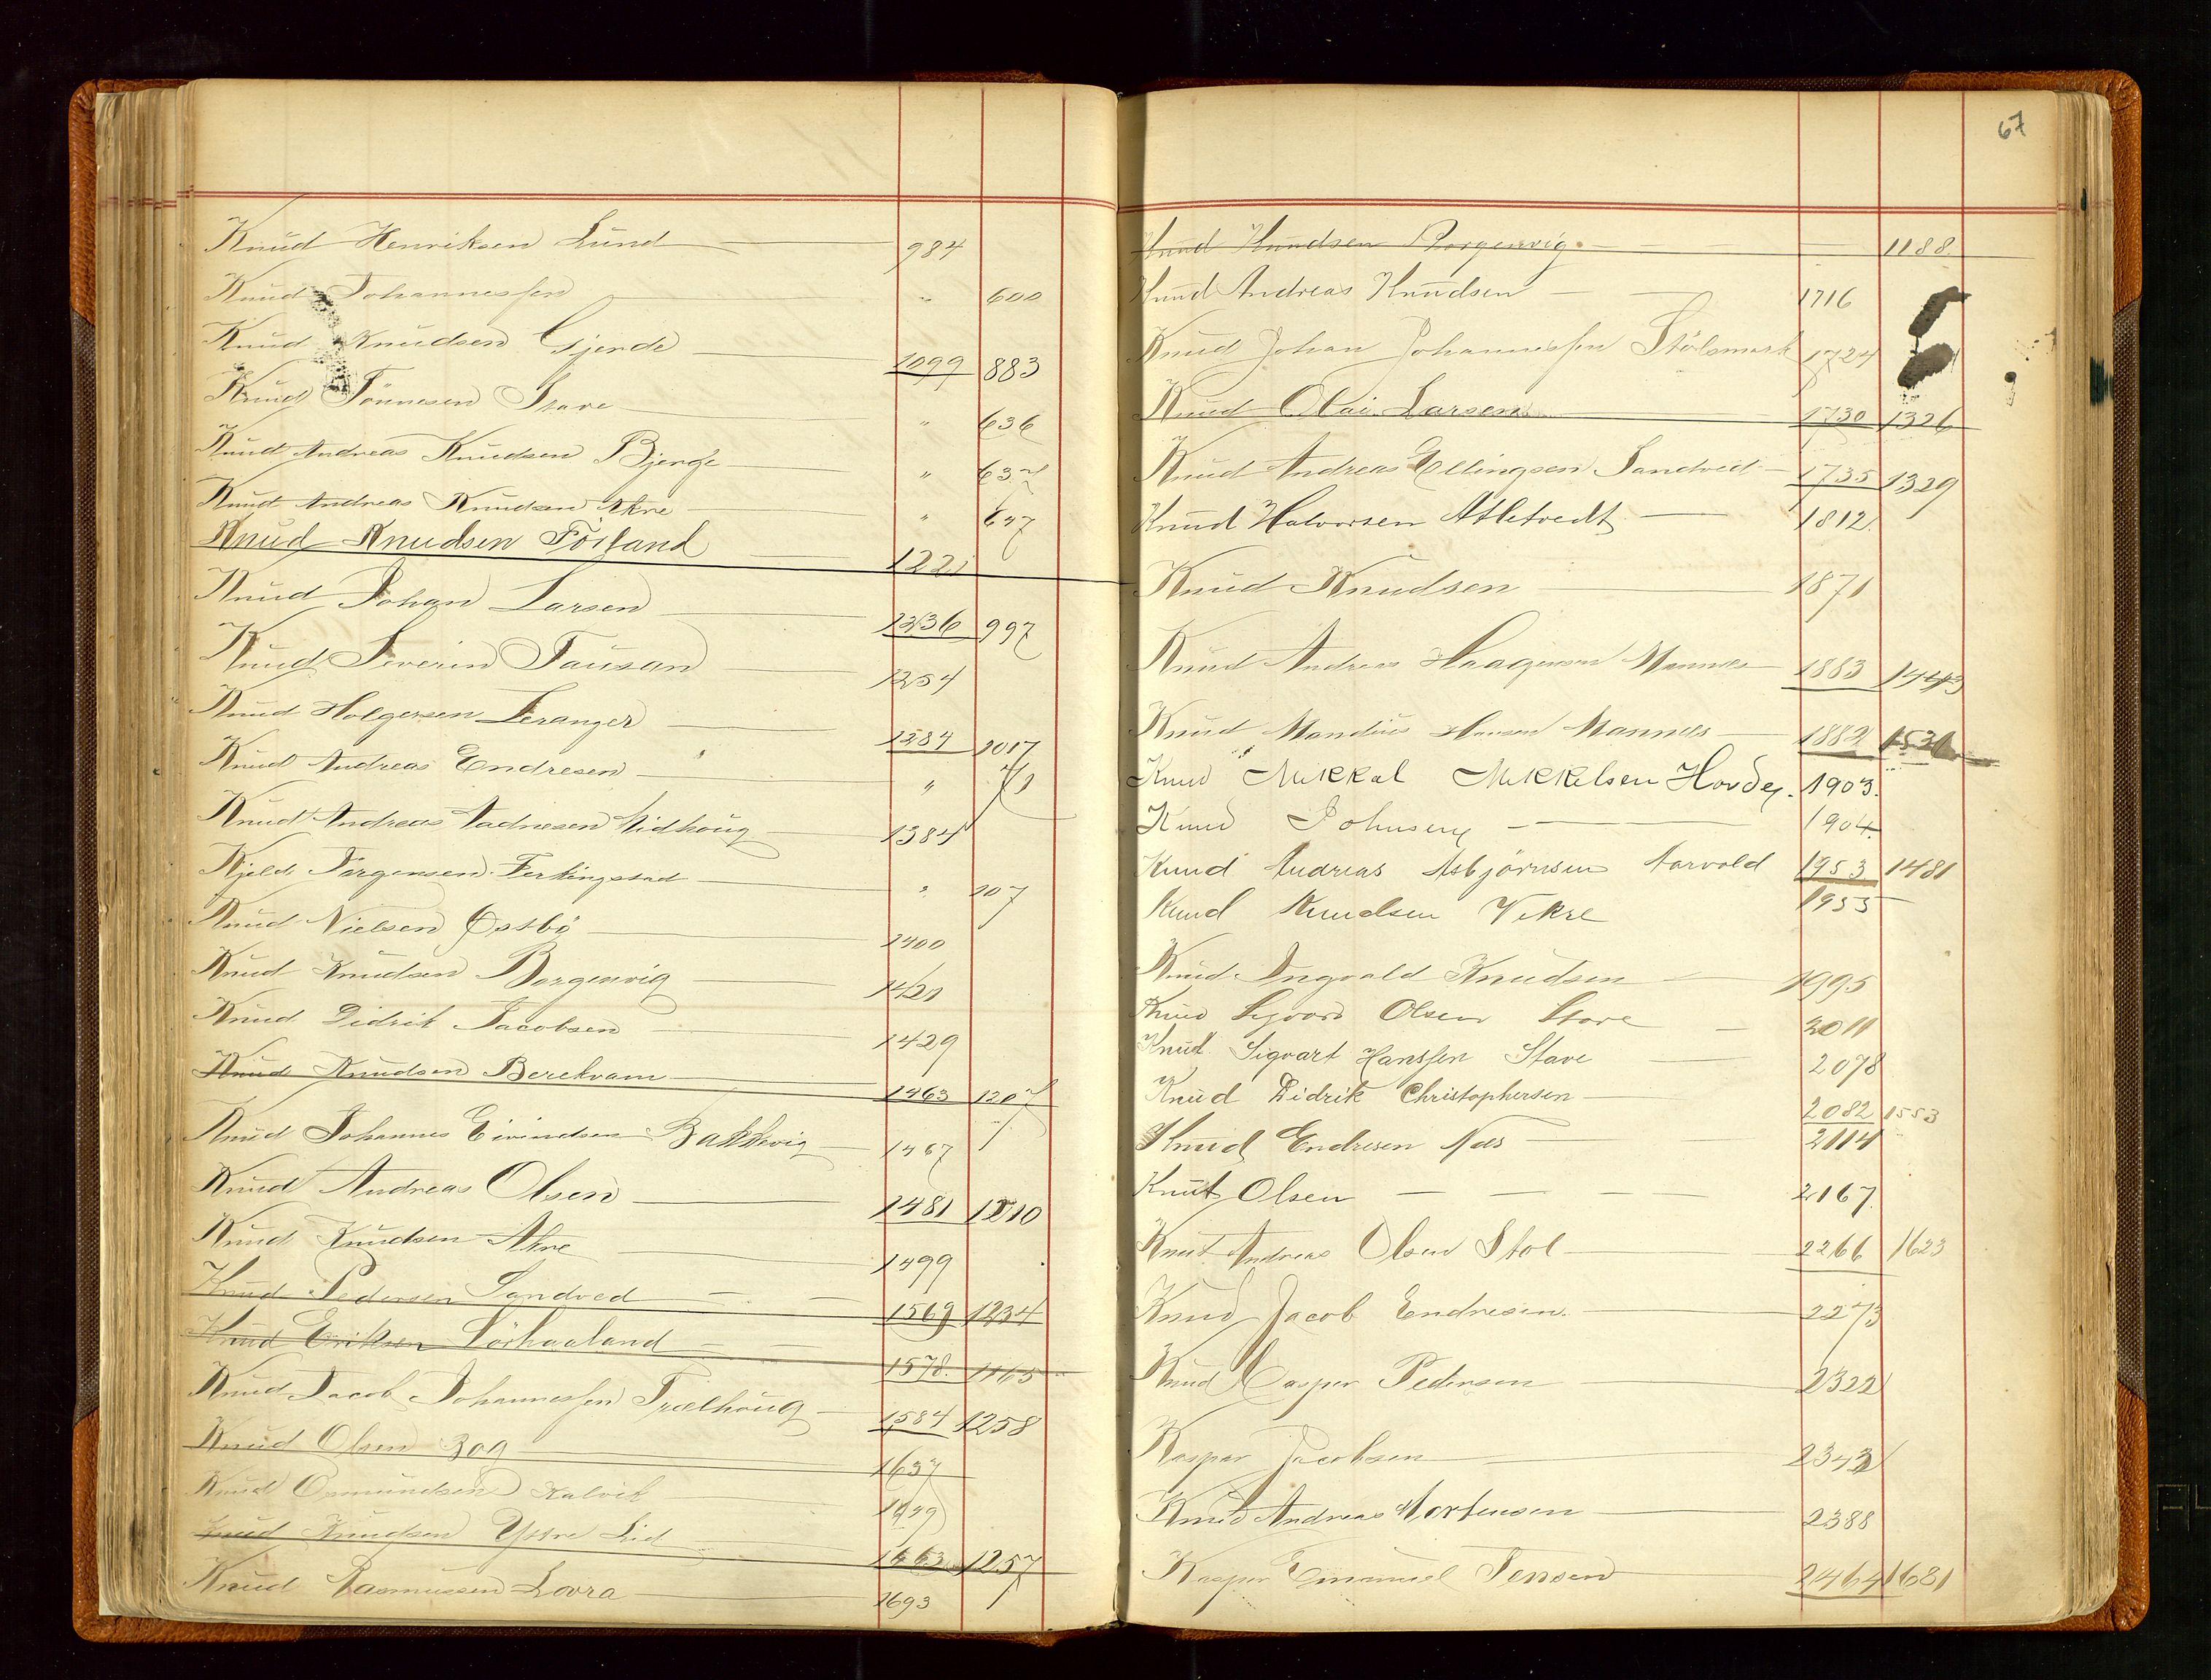 67
Knud Henriksen Lund 984
Knud Johannessen " 600
Knud Knudsen Gjerde 1099 883
Knud Tönnesen Stave " 636
Knud Andreas Knudsen Bjerge " 637
Knud Andreas Knudsen Akre " 647
Knud Knudsen Förland 1221
Knud Johan Larsen 1236 997
Knud Severin Tausan 1254
Knud Holgersen Leranger 1284 1017
Knud Andreas Endresen "
Knud Andreas Aadnesen Lidhoug 1384
Kjeld Jörgensen Ferkingstad " 107
Knud Nielsen Östbö 1400
Knud Knudsen Borgenvig 1421
Knud Didrik Jacobsen 1429
Knud Knudsen Berekvam 1463 1207
Knud Johannes Eivindsen Bakkevig 1467
Knud Andreas Olsen 1481 1210
Knud Knudsen Akre 1499
Knud Pedersen Sandved 1569 1234
Knud Eriksen Sörhaaland 1578 1165
Knud Jacob Johannessen Trælhoug 1584 1258
Knud Olsen Bog 1637
Knud Osmundsen Kalvik 1649
Knud Knudsen Ystre Lid 1663 1257
Knud Rasmussen Lovra 1693
Knud Knudsen Borgenvig 1188
Knud Andreas Knudsen 1716
Knud Johan Johannessen Stölsmark 1724
Knud Olai Larsen 1730 1326
Knud Andreas Ellingsen Sandved 1735 1329
Knud Halvorsen Atletvedt 1812
Knud Knudsen 1871
Knud Andreas Haagensen Mannes 1883 1443
Knud Mandius Hansen Mannes 1882 1531
Knud Mikkal Mikkelsen Hovdey 1903
Knud Johnsen 1904
Knud Andreas Asbjörnsen Aarvold 1953 1481
Knud Knudsen Vikre 1955
Knud Ingvald Knudsen 1995
Knud Sigvard Olsen Stave 2011
Knud Sigvart Hanssen Stave 2078
Knud Didrik Christophersen 2082 1553
Knud Endresen Næs 2114
Knut Olsen 2167
Knut Andreas Olsen Stol 2266 1623
Knud Jacob Endresen 2273
Knud Casper Pedersen 2322
Kaspar Jacobsen 2343
Knud Andreas Mortensen 2388
Kaspar Emanuel Jenssen 2464 1681